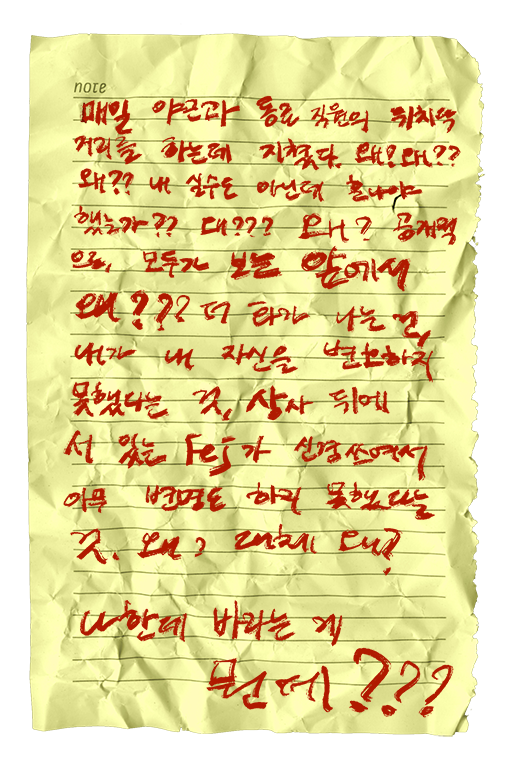 note
매일 야근과 동료 직원의 뒤치닥
거리를 하는데 지쳤다. 왜?왜??
왜?? 내 실수도 아닌데 혼나야
했는가?? 대??? 왜? 공개적
으로, 모두가 보는 앞에서
왜??? 더 화가 나는 건,
내가 내 자신을 변호하지
못했다는 것, 상사 뒤에
서 있는 가 신경쓰여서
아무 변명도 하지 못했다는
것. 왜? 대체 왜?
나한테 바라는 게
뭔데???